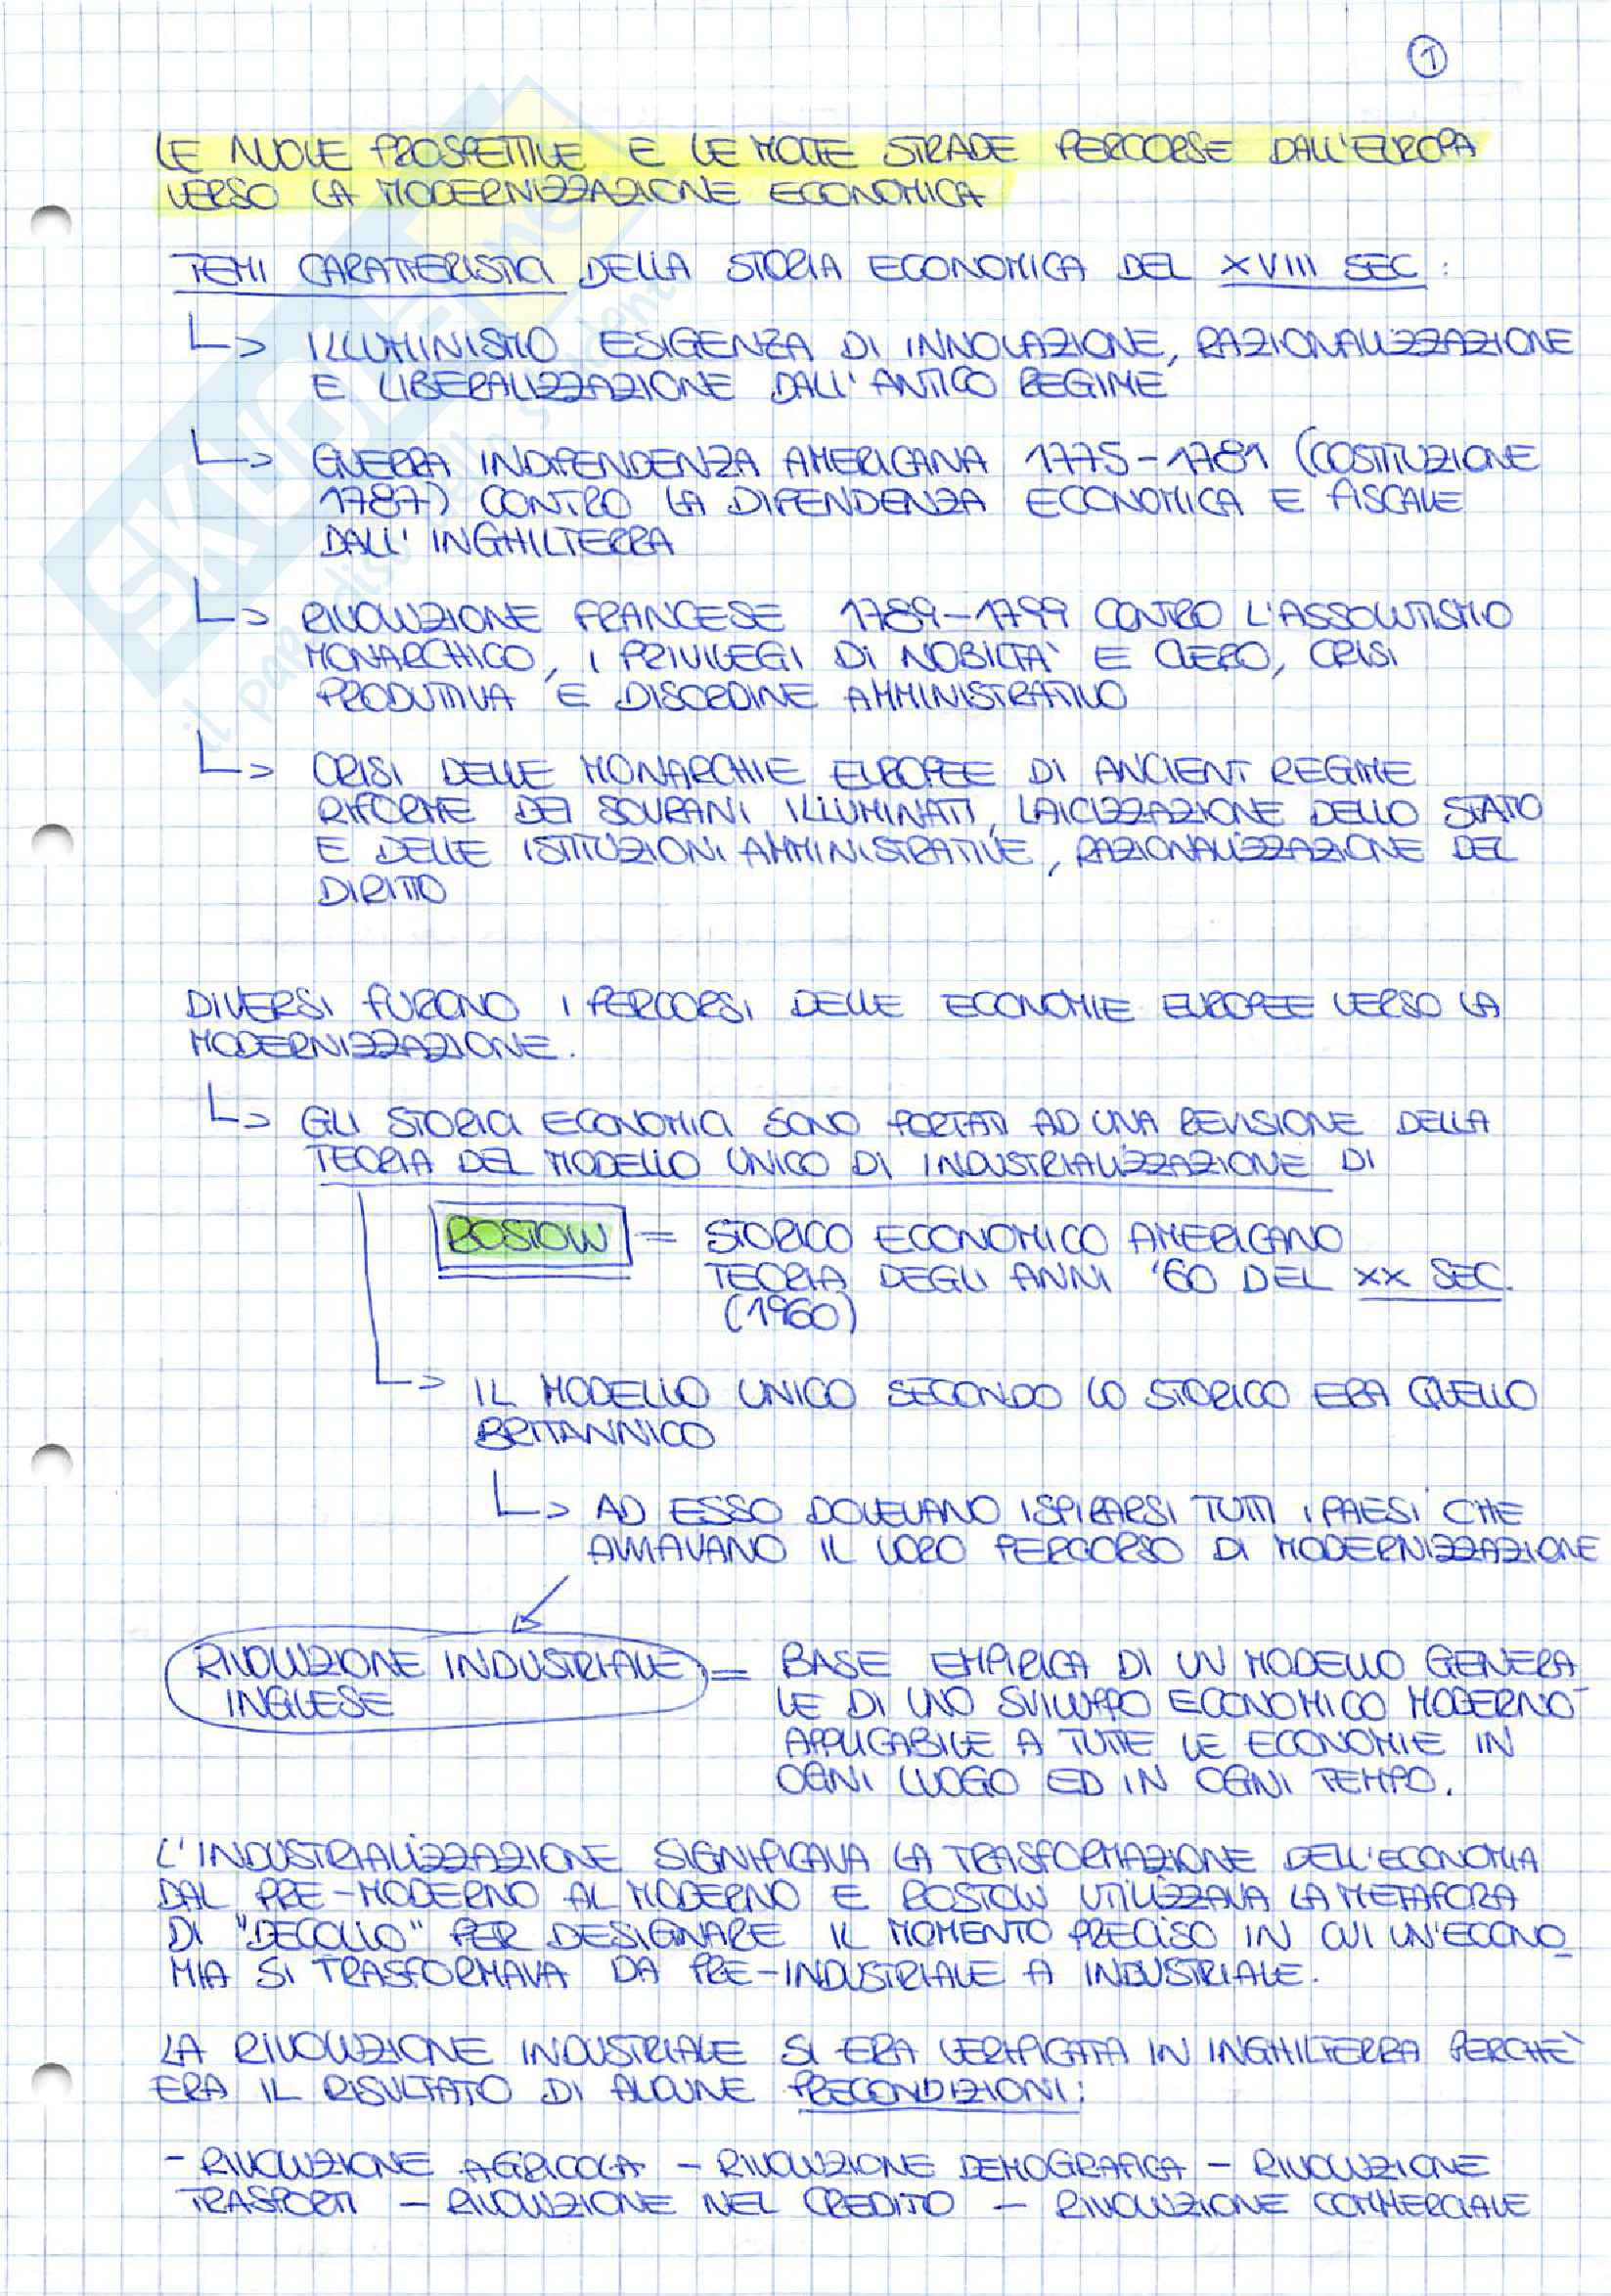 1
LE NUOVE PROSPETTIVE E LE MOLTE STRADE PERCORSE DALL'EUROPA
VERSO LA MODERNIZZAZIONE ECONOMICA
TEMI CARATTERISTICI DELLA STORIA ECONOMICA DEL XVIII SEC:
↳ ILLUMINISMO ESIGENZA DI INNOVAZIONE, RAZIONALIZZAZIONE
E LIBERALIZZAZIONE DALL'ANTICO REGIME
↳ GUERRA INDIPENDENZA AMERICANA 1775-1781 (COSTITUZIONE
1787) CONTRO LA DIPENDENZA ECONOMICA E FISCALE
DALL'INGHILTERRA
↳ RIVOLUZIONE FRANCESE 1789-1799 CONTRO L'ASSOLUTISMO
MONARCHICO, I PRIVILEGI DI NOBILTA' E CLERO, CRISI
PRODUTTIVA E DISORDINE AMMINISTRATIVO
↳ CRISI DELLE MONARCHIE EUROPEE DI ANCIENT REGIME
RIFORME DEI SOVRANI ILLUMINATI, LAICIZZAZIONE DELLO STATO
E DELLE ISTITUZIONI AMMINISTRATIVE, RAZIONALIZZAZIONE DEL
DIRITTO
DIVERSI FURONO I PERCORSI DELLE ECONOMIE EUROPEE VERSO LA
MODERNIZZAZIONE.
↳ GLI STORICI ECONOMICI SONO PORTATI AD UNA REVISIONE DELLA
TEORIA DEL MODELLO UNICO DI INDUSTRIALIZZAZIONE DI
ROSTOW = STORICO ECONOMICO AMERICANO
TEORIA DEGLI ANNI '60 DEL XX SEC.
(1960)
↳ IL MODELLO UNICO SECONDO LO STORICO ERA QUELLO
BRITANNICO
↳ AD ESSO DOVEVANO ISPIRARSI TUTTI I PAESI CHE
AVVIAVANO IL LORO PERCORSO DI MODERNIZZAZIONE
RIVOLUZIONE INDUSTRIALE = BASE EMPIRICA DI UN MODELLO GENERA
INGLESE LE DI UNO SVILUPPO ECONOMICO MODERNO
APPLICABILE A TUTTE LE ECONOMIE IN
OGNI LUOGO ED IN OGNI TEMPO.
L'INDUSTRIALIZZAZIONE SIGNIFICAVA LA TRASFORMAZIONE DELL'ECONOMIA
DAL PRE-MODERNO AL MODERNO E ROSTOW UTILIZZAVA LA METAFORA
DI "DECOLLO" PER DESIGNARE IL MOMENTO PRECISO IN CUI UN'ECONO
MIA SI TRASFORMAVA DA PRE-INDUSTRIALE A INDUSTRIALE.
LA RIVOLUZIONE INDUSTRIALE SI ERA VERIFICATA IN INGHILTERRA PERCHE'
ERA IL RISULTATO DI ALCUNE PRECONDIZIONI:
- RIVOLUZIONE AGRICOLA - RIVOLUZIONE DEMOGRAFICA - RIVOLUZIONE
TRASPORTI - RIVOLUZIONE NEL CREDITO - RIVOLUZIONE COMMERCIALE